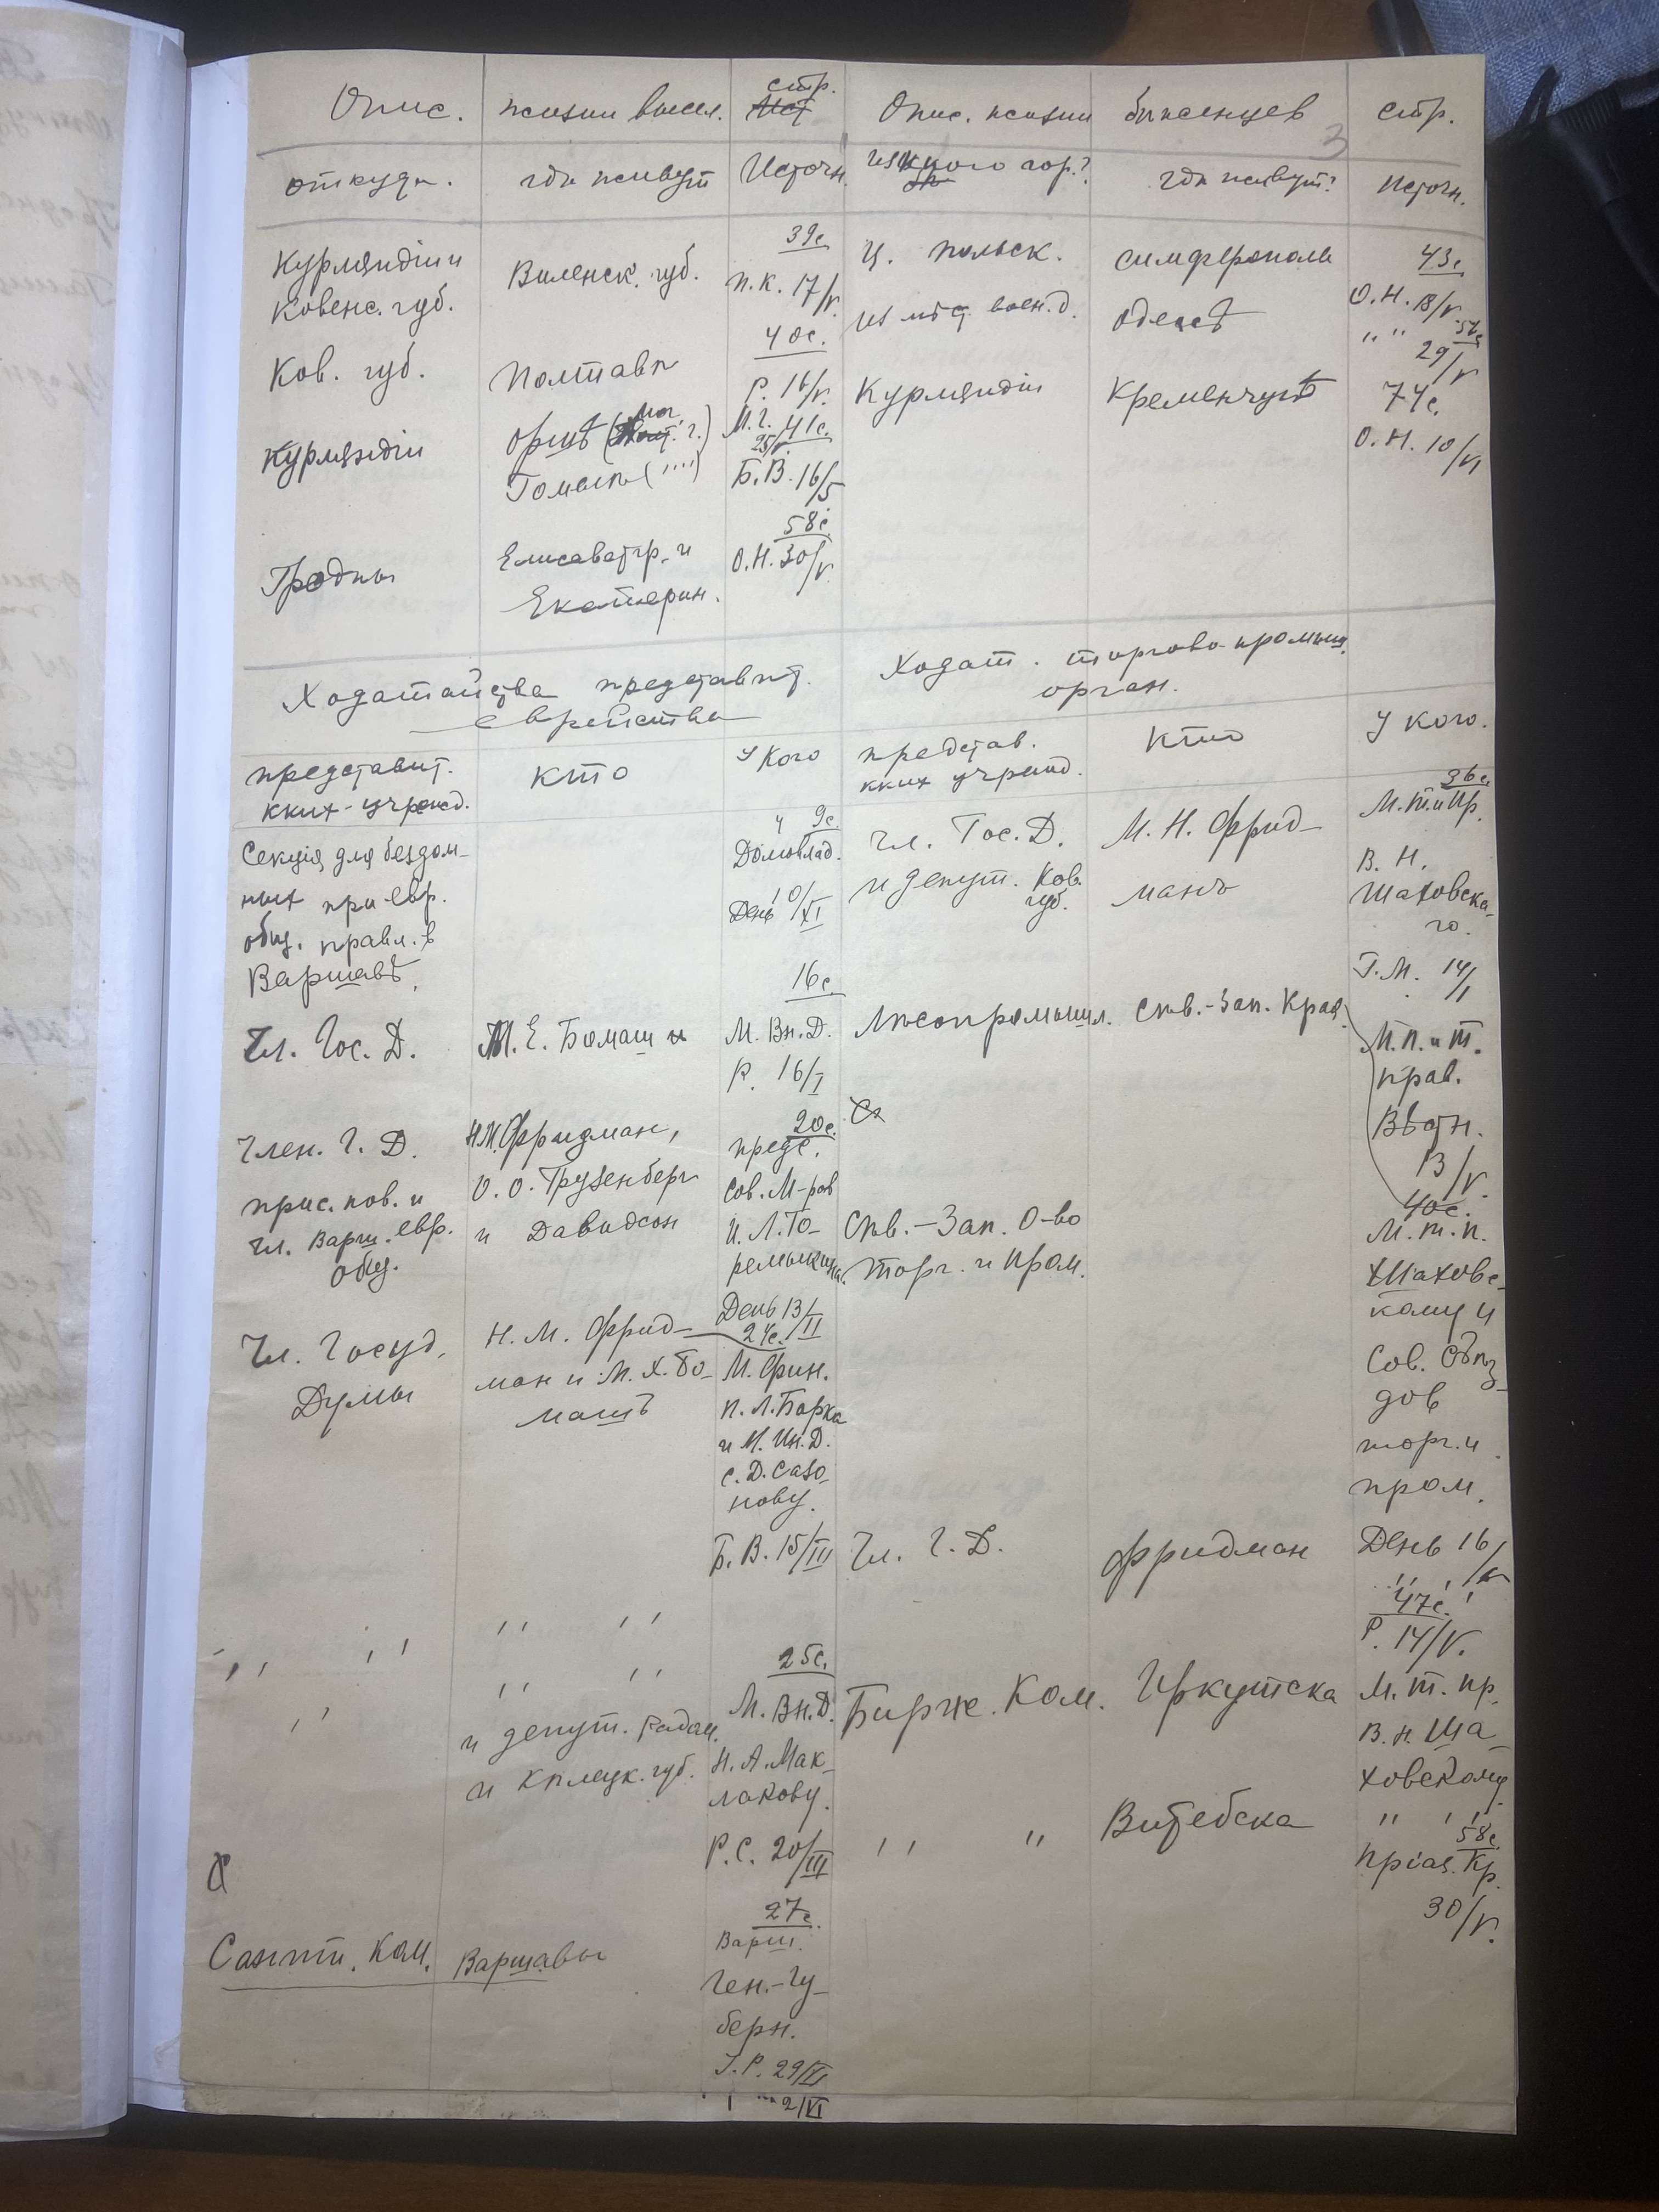 Опис. жизни высел. стр. Опис. жизни бѣженцев стр.
3
откуда. гдѣ живут Источн. из какого гор.? гдѣ живут? Источн.
Курляндіи и
Ковенс. губ.
Виленск. губ.
39 с.
П. К. 17/V.
Ц. Польск.
Симферополь
43 с.
О. Н. 18/V.
из мѣст воен. д.
Одессѣ
" "
29/V
Ков. губ.
Полтавѣ
40 с.
Р. 16/V.
Курляндіи
Кременчугѣ
74 с.
О. Н. 10/VI
Курляндіи
Оршѣ (Мог. г.)
Гомелѣ ( " " )
М. Г. 41 с.
25/V
Б. В. 16/5
Гродны
Елисаветгр. и
Екатерин.
58 с.
О. Н. 30/V.
Ходатайства представит.
еврейства
Ходат. торгово-промыш.
орган.
представит.
кких-учрежд.
кто
У кого
представ.
кких учрежд.
кто
У кого.
Секція для бездом-
ных при евр.
общ. правл. в
Варшавѣ.
9 с.
Домовлад.
День 10/XI
Чл. Гос. Д.
и депут. Ков.
губ.
М. Н. Фрид-
манъ
36 с.
М. т. и пр.
В. Н.
Шаховска-
го.
Г. М. 14/I
Чл. Гос. Д.
М. Е. Бомаш и
16 с.
М. Вн. Д.
Р. 16/I
Лѣсопромышл. Сѣв.-Зап. Края
М. П. и Т.
Прав.
Вѣстн.
13/V.
Член. Г. Д.
прис. пов. и
чл. Варш. евр.
общ.
Н. М. Фридман,
О. О. Грузенберг
и Давидсон
20 с.
предс.
Сов. М-ров
И. Л. Го-
ремыкина.
День 13/II
Сѣв.-Зап. О-во
Торг. и Пром.
40 с.
М. т. п.
Шаховс-
кому и
Сов. Съѣз-
дов
торг. и
пром.
День 16/V
Чл. Госуд.
Думы
Н. М. Фрид-
ман и М. Х. Бо-
машъ
24 с.
М. Фин.
П. Л. Барка
и М. Ин. Д.
С. Д. Сазо-
нову.
Б. В. 15/III
Чл. Г. Д.
Фридман
" "
47 с.
Р. 14/V.
" " " "
" " "
и депут. Радом.
и Кѣлецк. губ.
25 с.
М. Вн. Д.
Н. А. Мак-
лакову.
Р. С. 20/III
Бирж. Ком. Иркутска
М. т. пр.
В. Н. Ша-
ховскому
" " Витебска
" "
58 с.
Пріаз. Кр.
30/V.
Санит. Ком. Варшавы
27 с.
Варш.
Ген.-Гу-
берн.